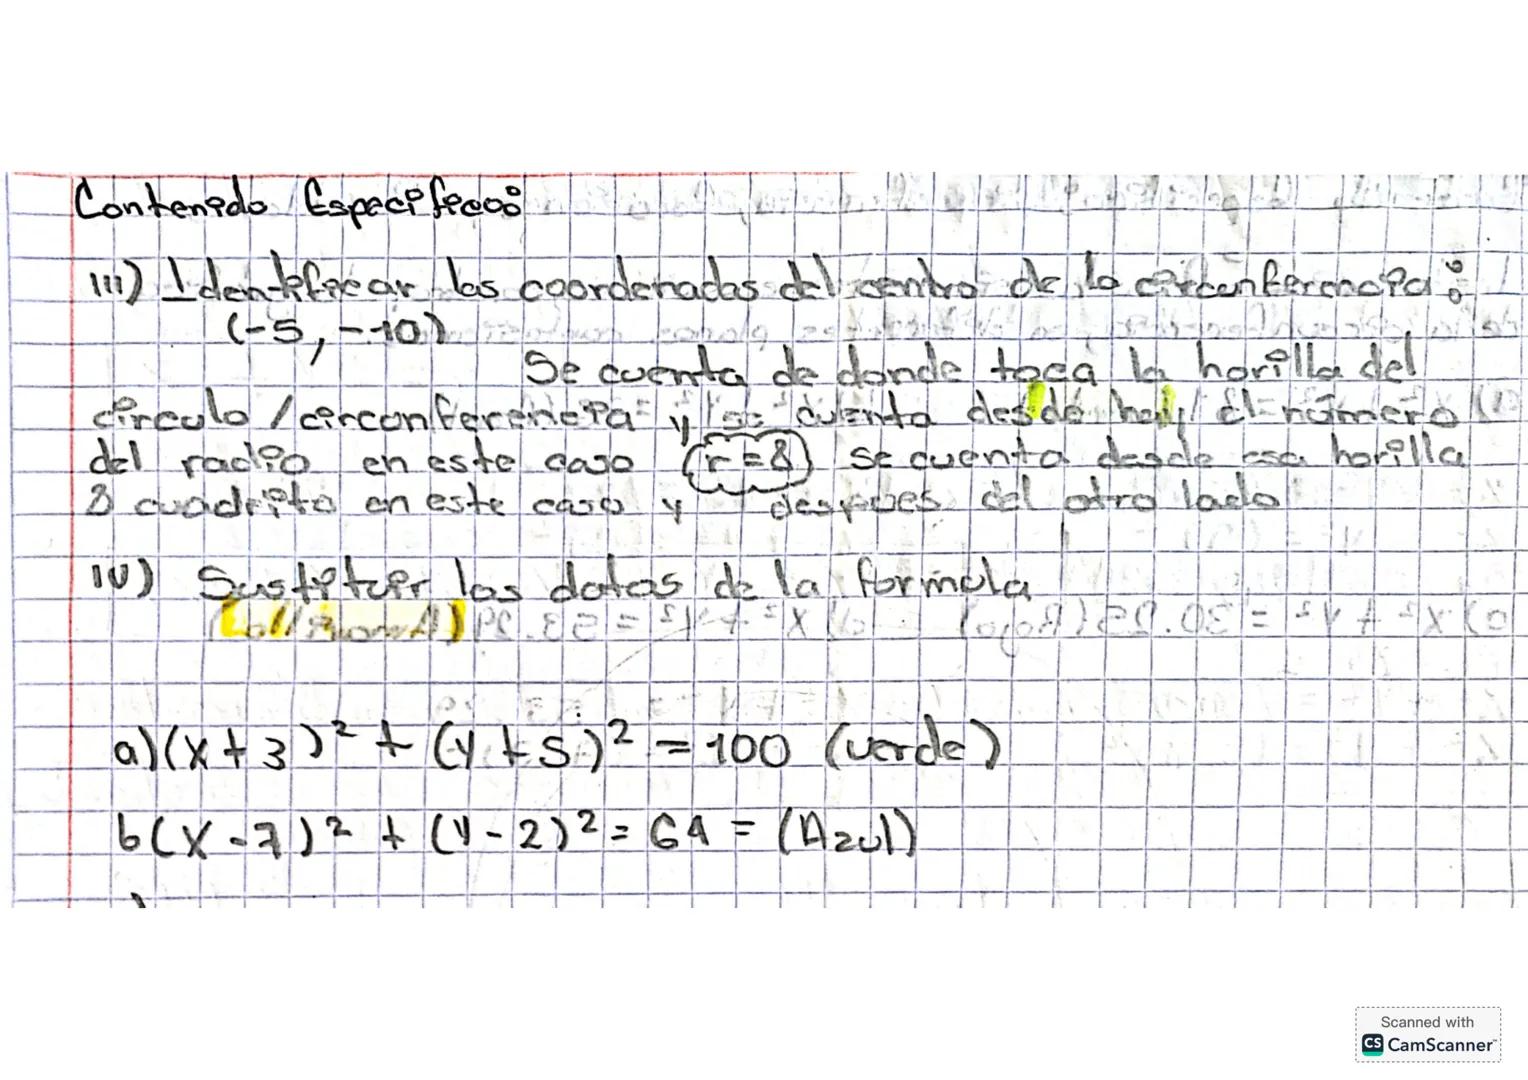 Contenido Especifico:
III) Identificar las coordenadas del sentro de la circunferencia:
(-5, -10)
Se cuenta de donde toca la horilla del
circulo / circonferencia y se cuenta desde hay el número
del radio en este caso (r=8) se cuenta desde esa horilla
8 cuadrito en este caso y despues del otro lado
IV) Sustituir los datos de la formula
a)(x+3)² + (y+5)² = 100 (verde)
b(x-7)² + (y-2)² = 64 = (Azul)
Scanned with
CS CamScanner